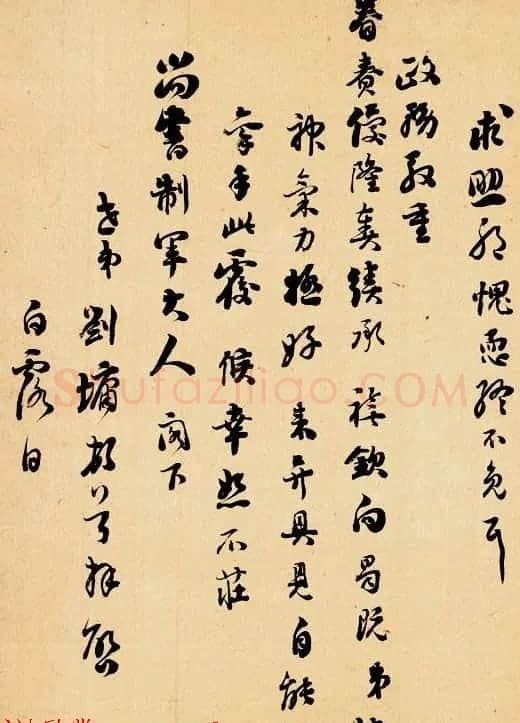 求照 愧恧 不免耳
政務殷重
眷賚優隆 奏績承 禧欽向曷既弟
神氣力極好 來弁具見自能
率手此覆候幸恕不莊
尚書制軍大人閣下
世弟劉墉頓首拜啟
白露日
shufaziliao.COM